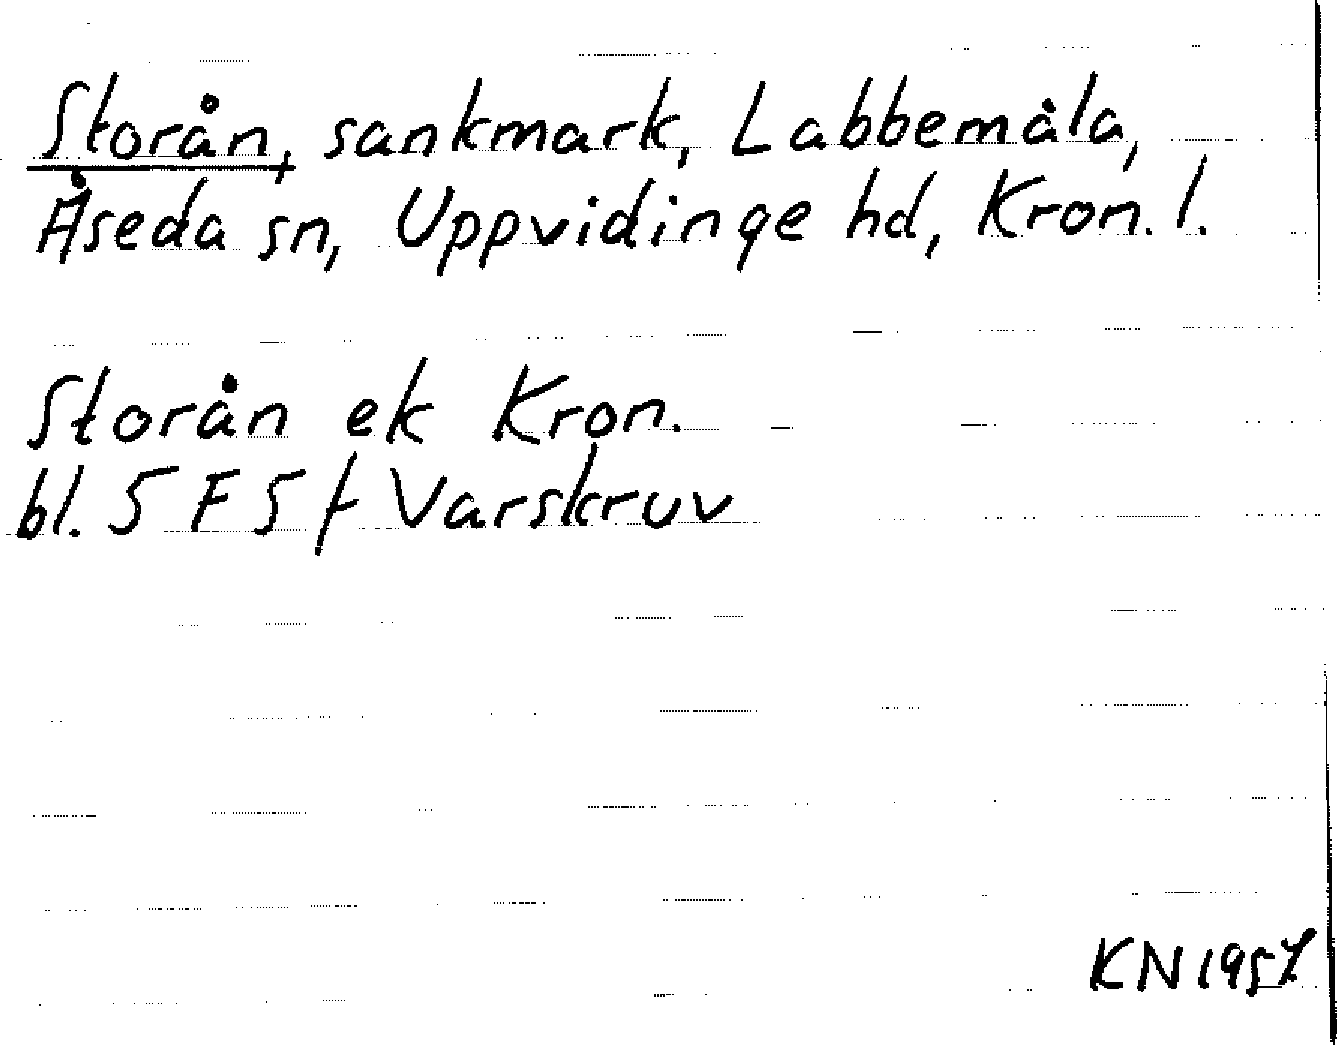 Storån, sankmark, Labbemåla,
Åseda sn, Uppvidinge hd, Kron. l.
Storån ek Kron.
bl. 5 F 5 f Varskruv
KN 1957